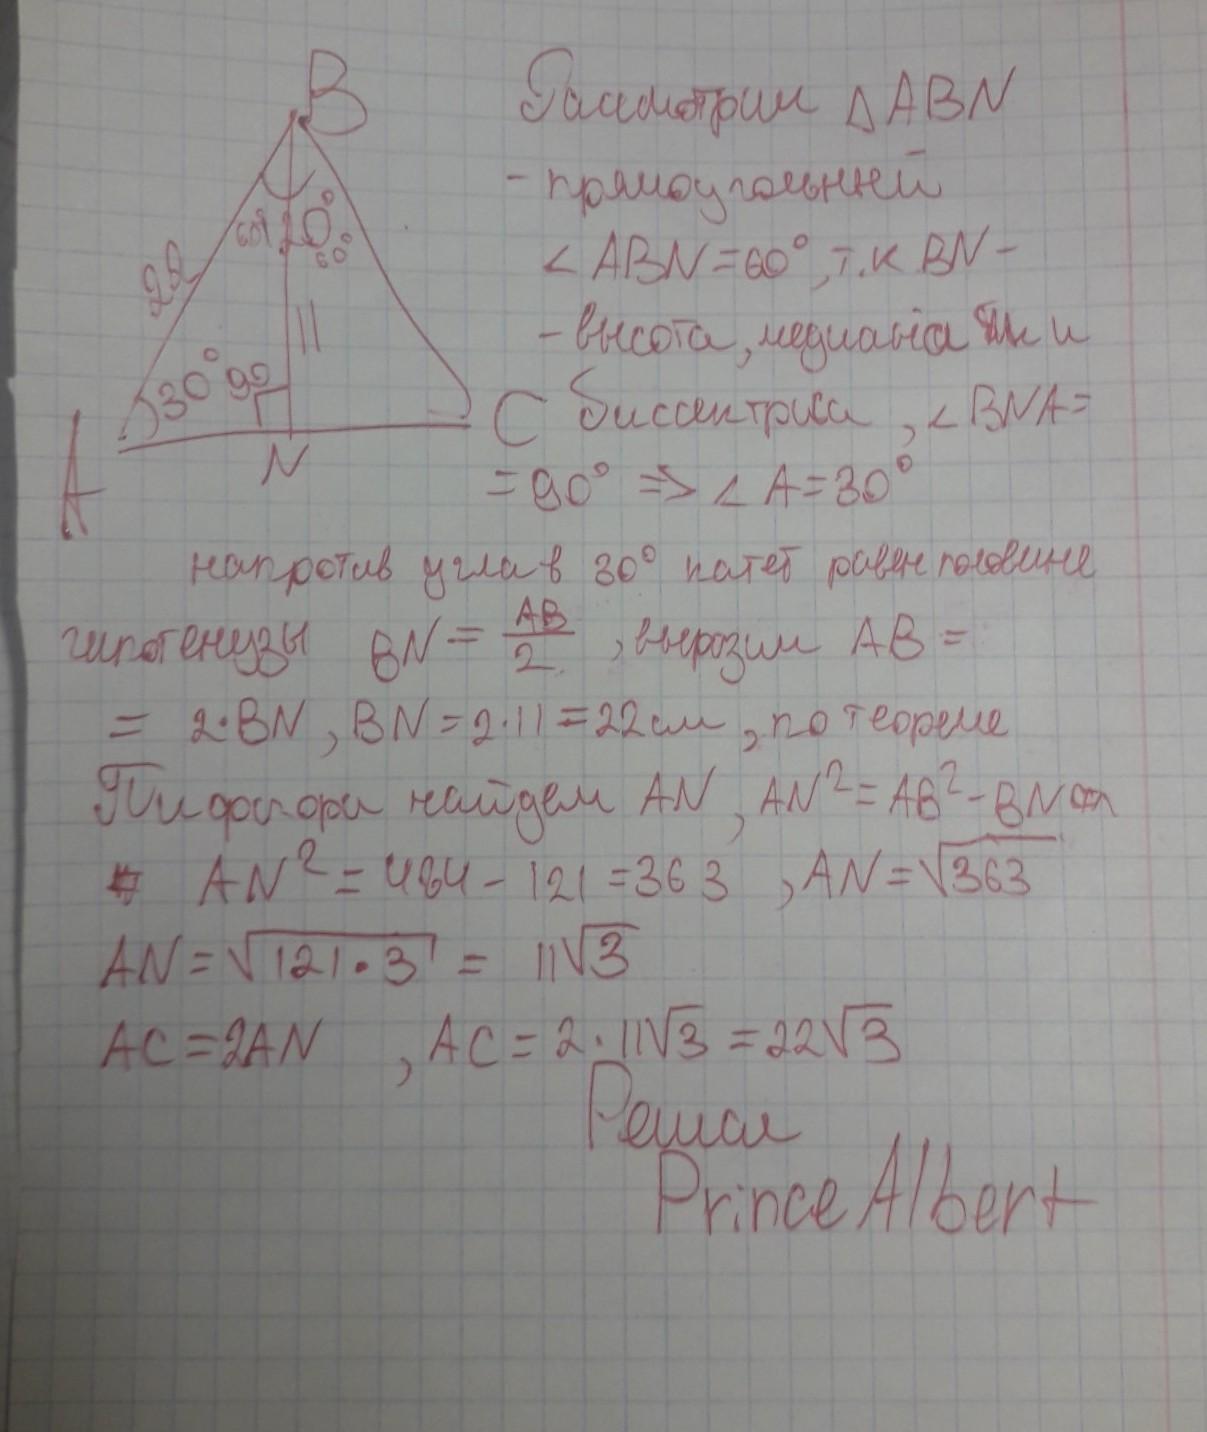 B
Рассмотрим △ABN
- прямоугольнней
∠ABN=60°, т.к BN-
- высота, медиана и
биссектриса, ∠BNA=
= 90° => ∠A=30°
22
60° 120° 60°
11
30° 90
A
N
C
напротив угла в 30° катет равен половине
гипотенузы BN = AB/2, вырозим AB =
= 2·BN, BN=2·11=22см, по теореме
Пифогора найдем AN, AN²=AB²-BN
AN²=484-121=363, AN=√363
AN=√121·3 = 11√3
AC=2AN, AC=2·11√3=22√3
Решал
Prince Albert